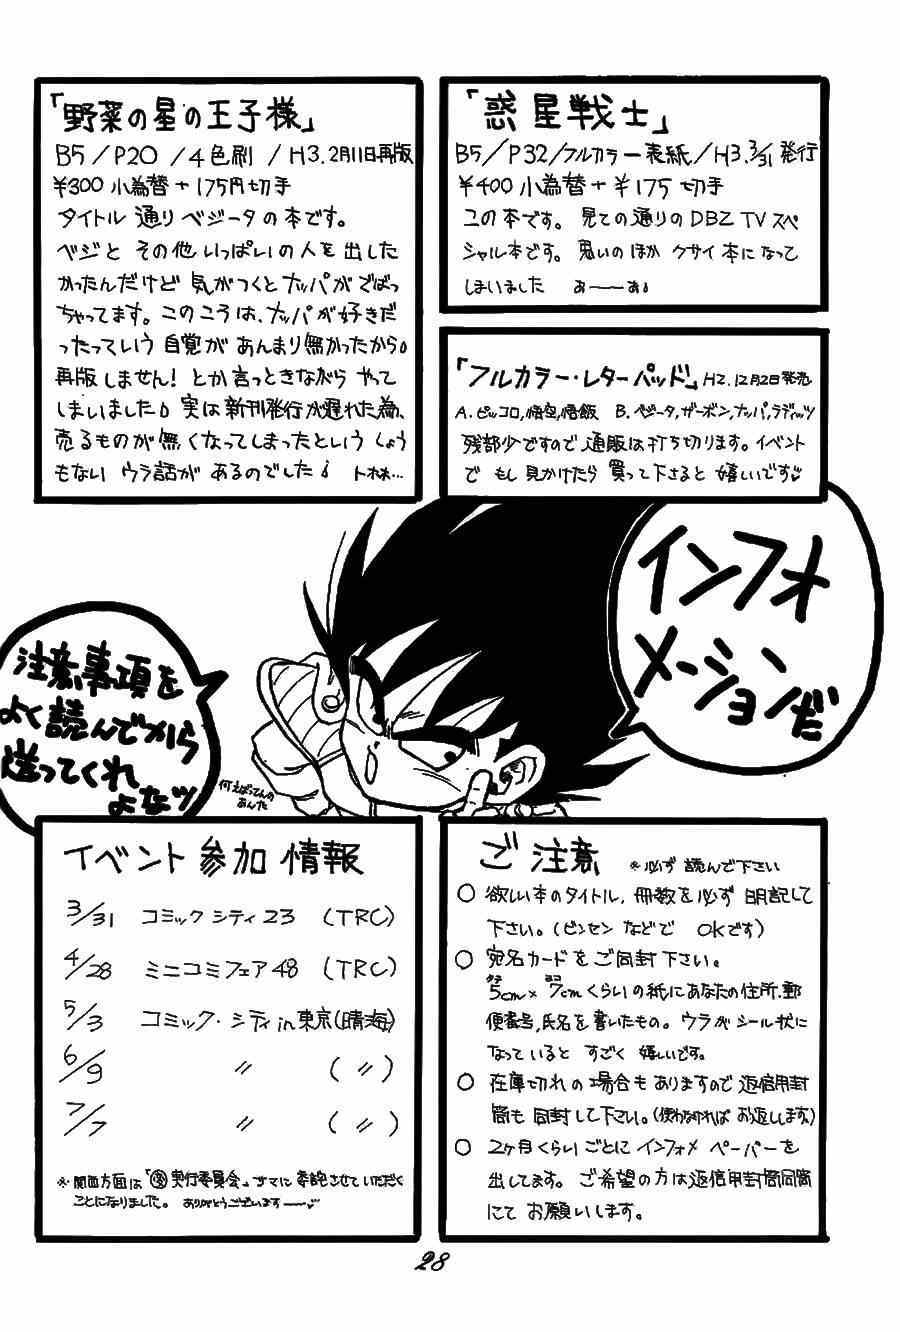 「野菜の星の王子様」
B5/P20/4色刷/H3.2月11日再版
¥300小為替+175円切手
タイトル通りベジータの本です。
ベジとその他いっぱいの人を出した
かったんだけど気がつくとナッパがでばっ
ちゃってます。このころは、ナッパが好きだ
ったっていう自覚があんまり無かったから。
再版しません!とか言っときながらやって
しまいました。実は新刊発行が遅れた為、
売るものが無くなってしまったというしょう
もないウラ話があるのでした。
「惑星戦士」
B5/P32/フルカラー表紙/H3.3/31発行
¥400小為替+¥175切手
この本です。見ての通りのDBZ TVスペ
シャル本です。思いのほかクサイ本になって
しまいました あ――あ。
「フルカラー・レターパッド」H2.12月2日発売
A.ピッコロ,悟空,悟飯 B.ベジータ,ザーボン,ナッパ,ラディッツ
残部少ですので通販は打ち切ります。イベント
でもし見かけたら買って下さると嬉しいです♡
インフォ
メーションだ
注意事項を
よく読んでから
送ってくれ
よなッ
何えばってんの
あんた
イベント参加情報
3/31 コミックシティ23 (TRC)
4/28 ミニコミフェア48 (TRC)
5/3 コミック・シティin東京(晴海)
6/9 〃 (〃)
7/7 〃 (〃)
ことになりました。ありがとうございます――♡
ご注意 ※必ず読んで下さい
○ 欲しい本のタイトル、冊数を必ず明記して
下さい。(ビンセンなどでOKです)
○ 宛名カードをご同封下さい。
タテ5cm×ヨコ7cmくらいの紙にあなたの住所、郵
便番号,氏名を書いたもの。ウラがシール状に
なっているとすごく嬉しいです。
○ 在庫切れの場合もありますので返信用封
筒も同封して下さい。(使わなければお返しします)
○ 2ヶ月くらいごとにインフォメペーパーを
出してます。ご希望の方は返信用封筒同筒
にてお願いします。
28